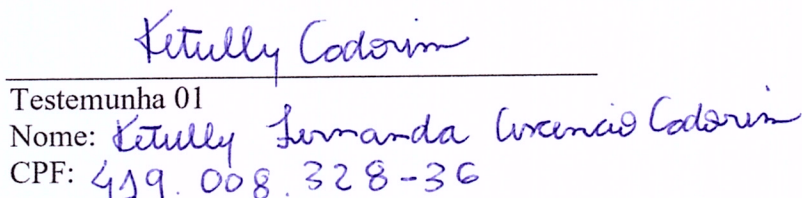 Ketully Codorim
Testemunha 01
Nome: Ketully Fernanda Codorim
CPF: 419.008.328-36